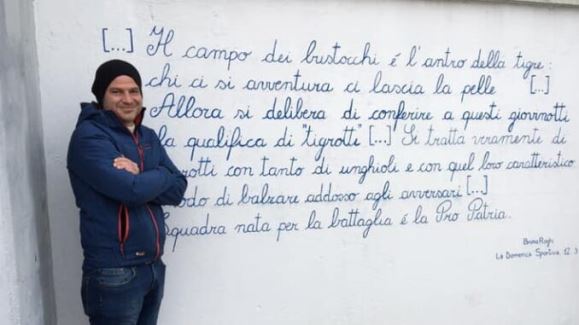 [...] Il campo dei bustocchi é l'antro della tigre:
chi ci si avventura ci lascia la pelle [...]
Allora si delibera di conferire a questi giovinotti
la qualifica di "tigrotti" [...] Si tratta veramente di
rotti con tanto di unghioli e con quel loro caratteristico
odo di balzare addosso agli avversari [...]
Squadra nata per la battaglia é la Pro Patria.
Bruno Roghi
La Domenica Sportiva, 12